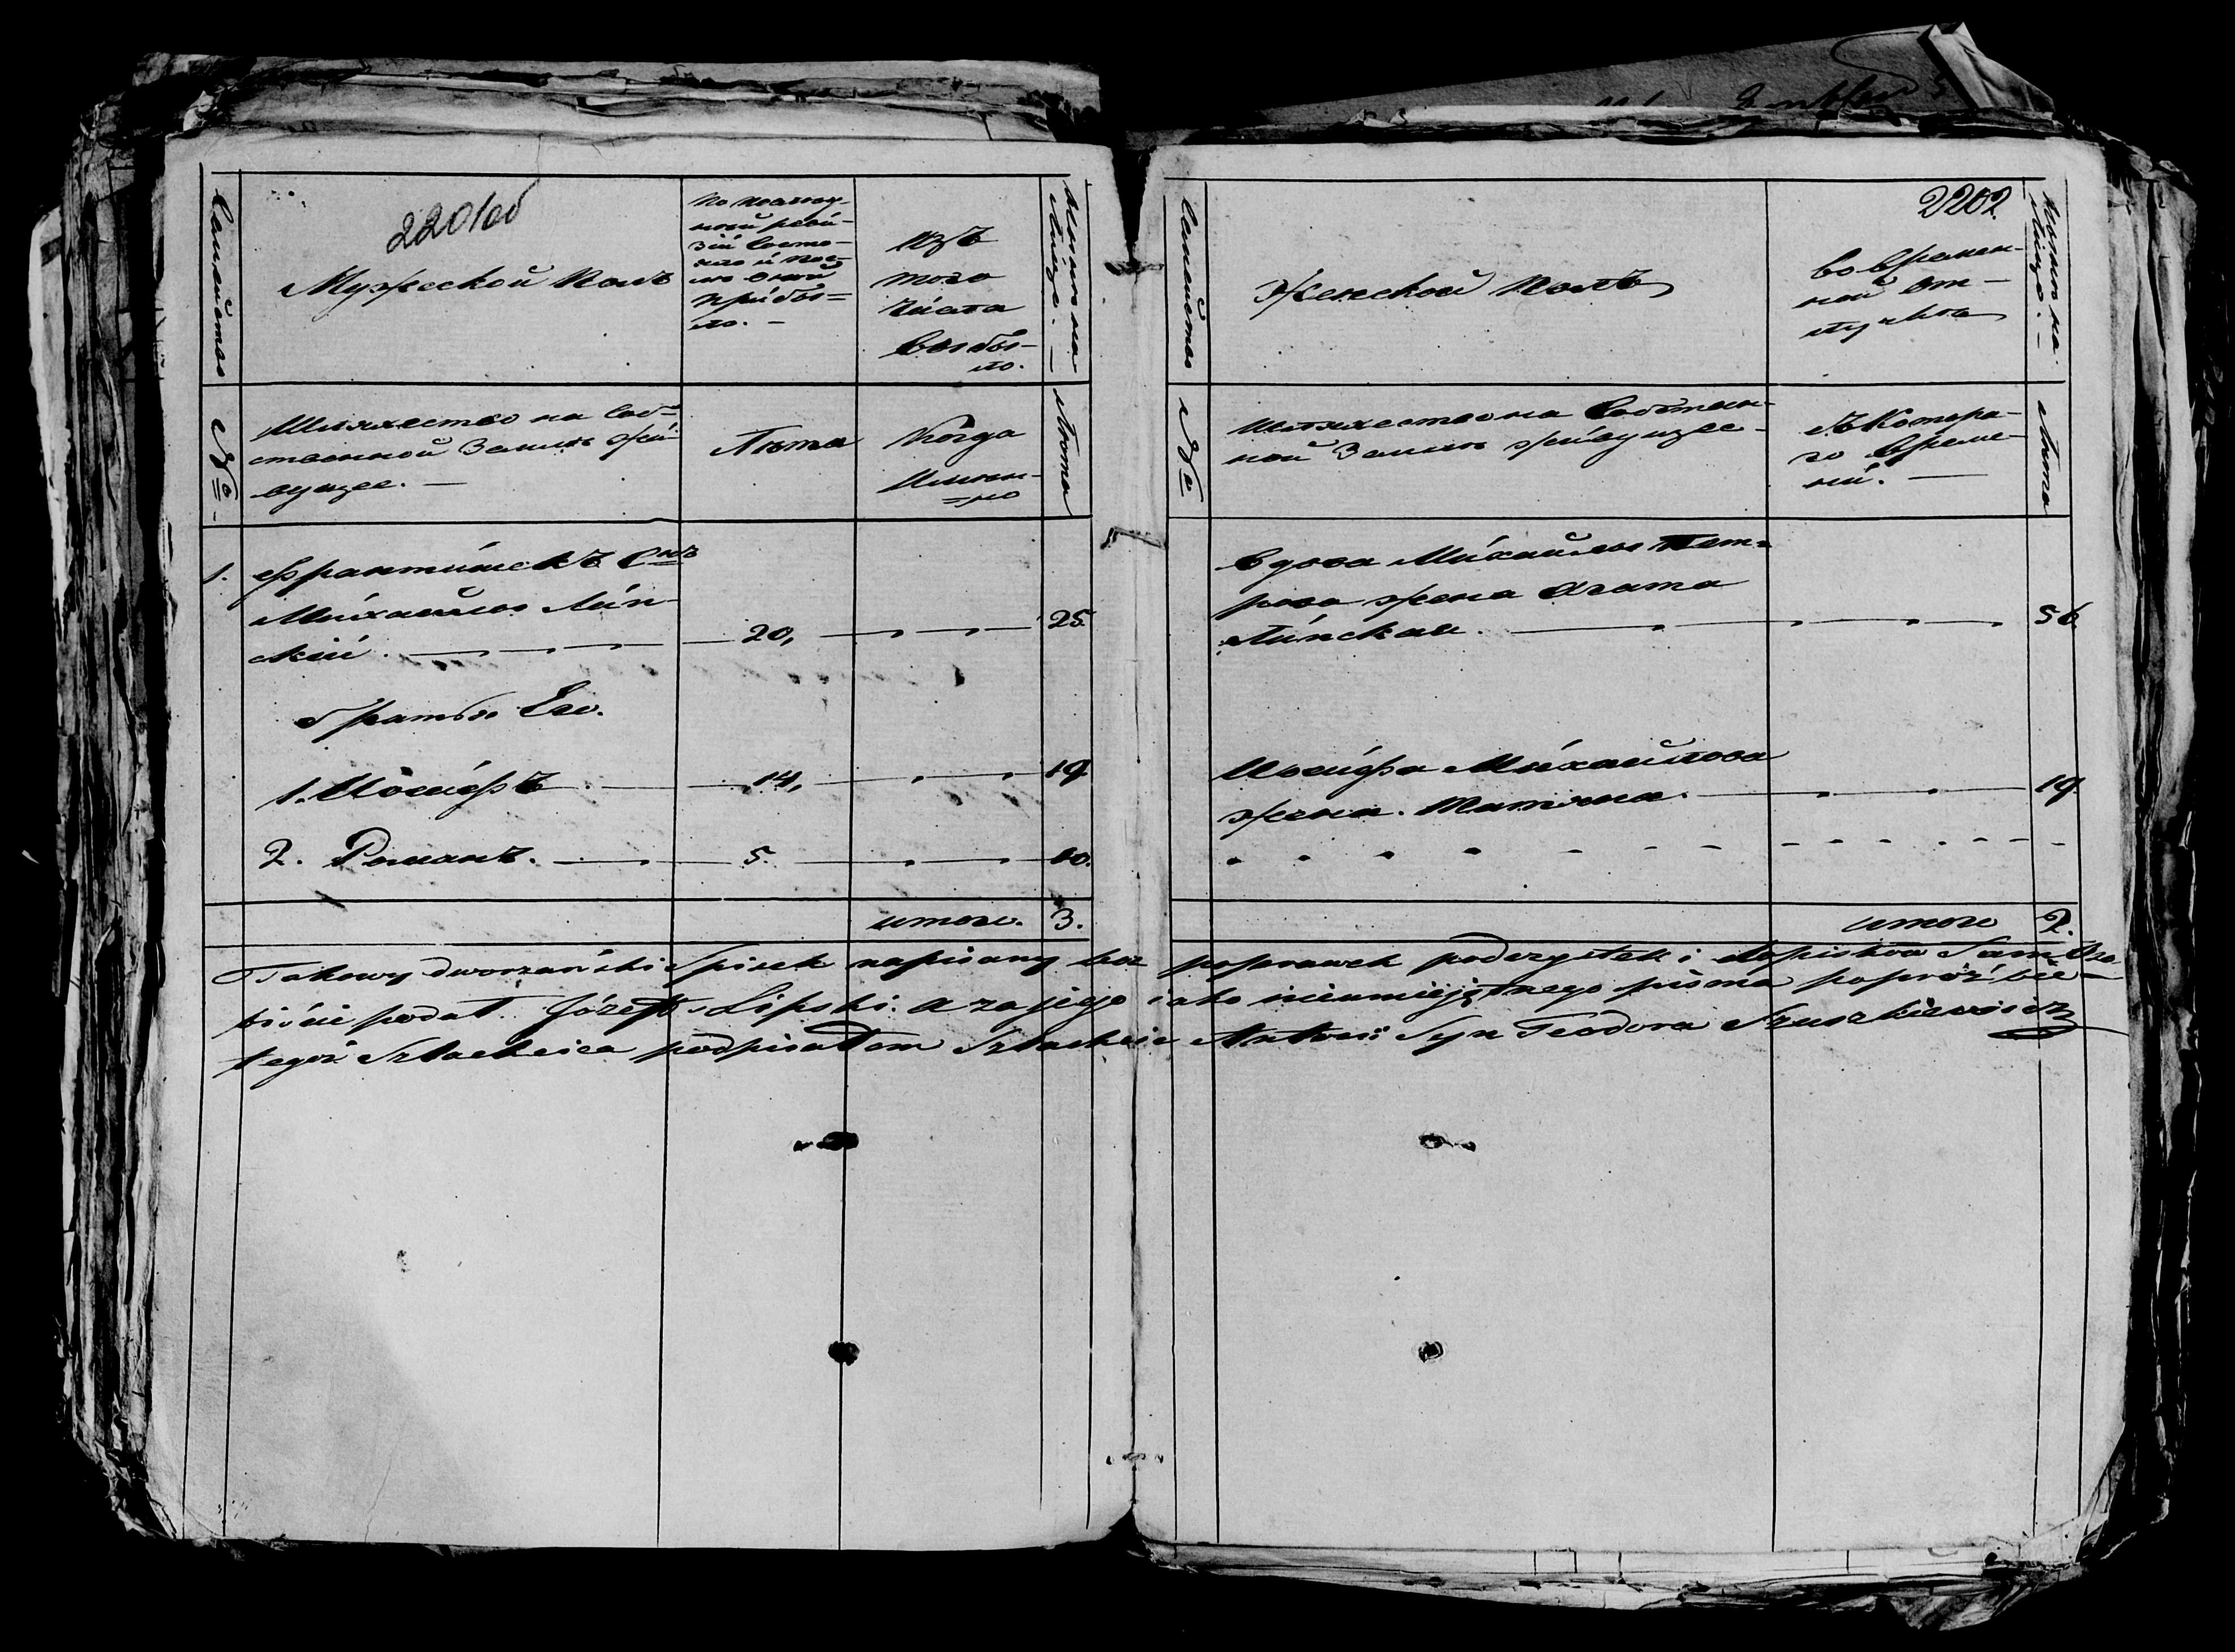 2201об
Семейство
Мужеской полъ
По послед-
ней реви-
зіи состо-
яло и пос-
ле оной
прибы=
ло. —
Изъ
того
числа
выбы-
ло.
Ныне на
лице. —
№
Шляхество на соб-
ственной Земли жи-
вущее. —
Лета
Когда
Именн-
=но
Лета
1. Францишекъ Снъ
Михайла Лип-
скій. — 20, — 25
братья Его.
1. Іосифъ — 14, — 19
2. Романъ. — 5. — 10.
итого. 3.
2202
Семейство
Женской полъ
Во времен-
ной от-
лучке
Ныне на
лице. —
№
Шляхество на собствен-
ной Земли живущее —
Съ Котора-
го време-
ни. —
Лета
Вдова Михайла Пет=
рова жена Агата
Липская. — 56
Иосифа Михайлова
жена. Татяна. — 19
итого 2.
Takowy dworzański Spisek napisany bez poprawek podczystek i dopiskow Sam Oso
biście podał Józeff Lipski. a za jego iako nieumiejętnego pisma poproź bie
tegoż Szlachcica podpisałem Szlachcic Antoni Syn Teodora Szuszkiewicz